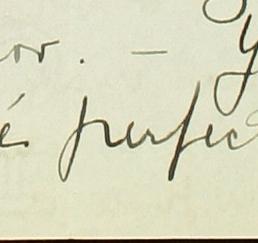 or. — Y
é perfec